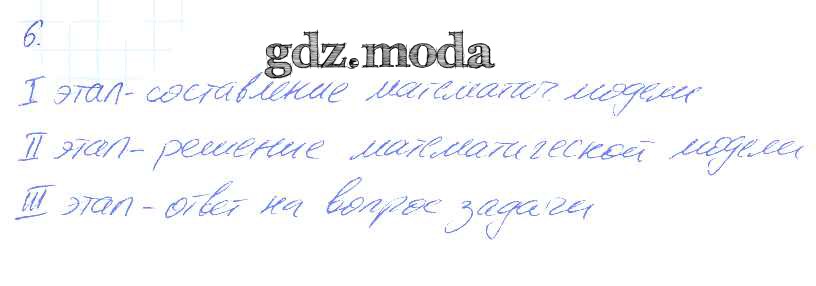 6.
gdz.moda
I этап - составление математич. модели
II этап - решение математической модели
III этап - ответ на вопрос задачи